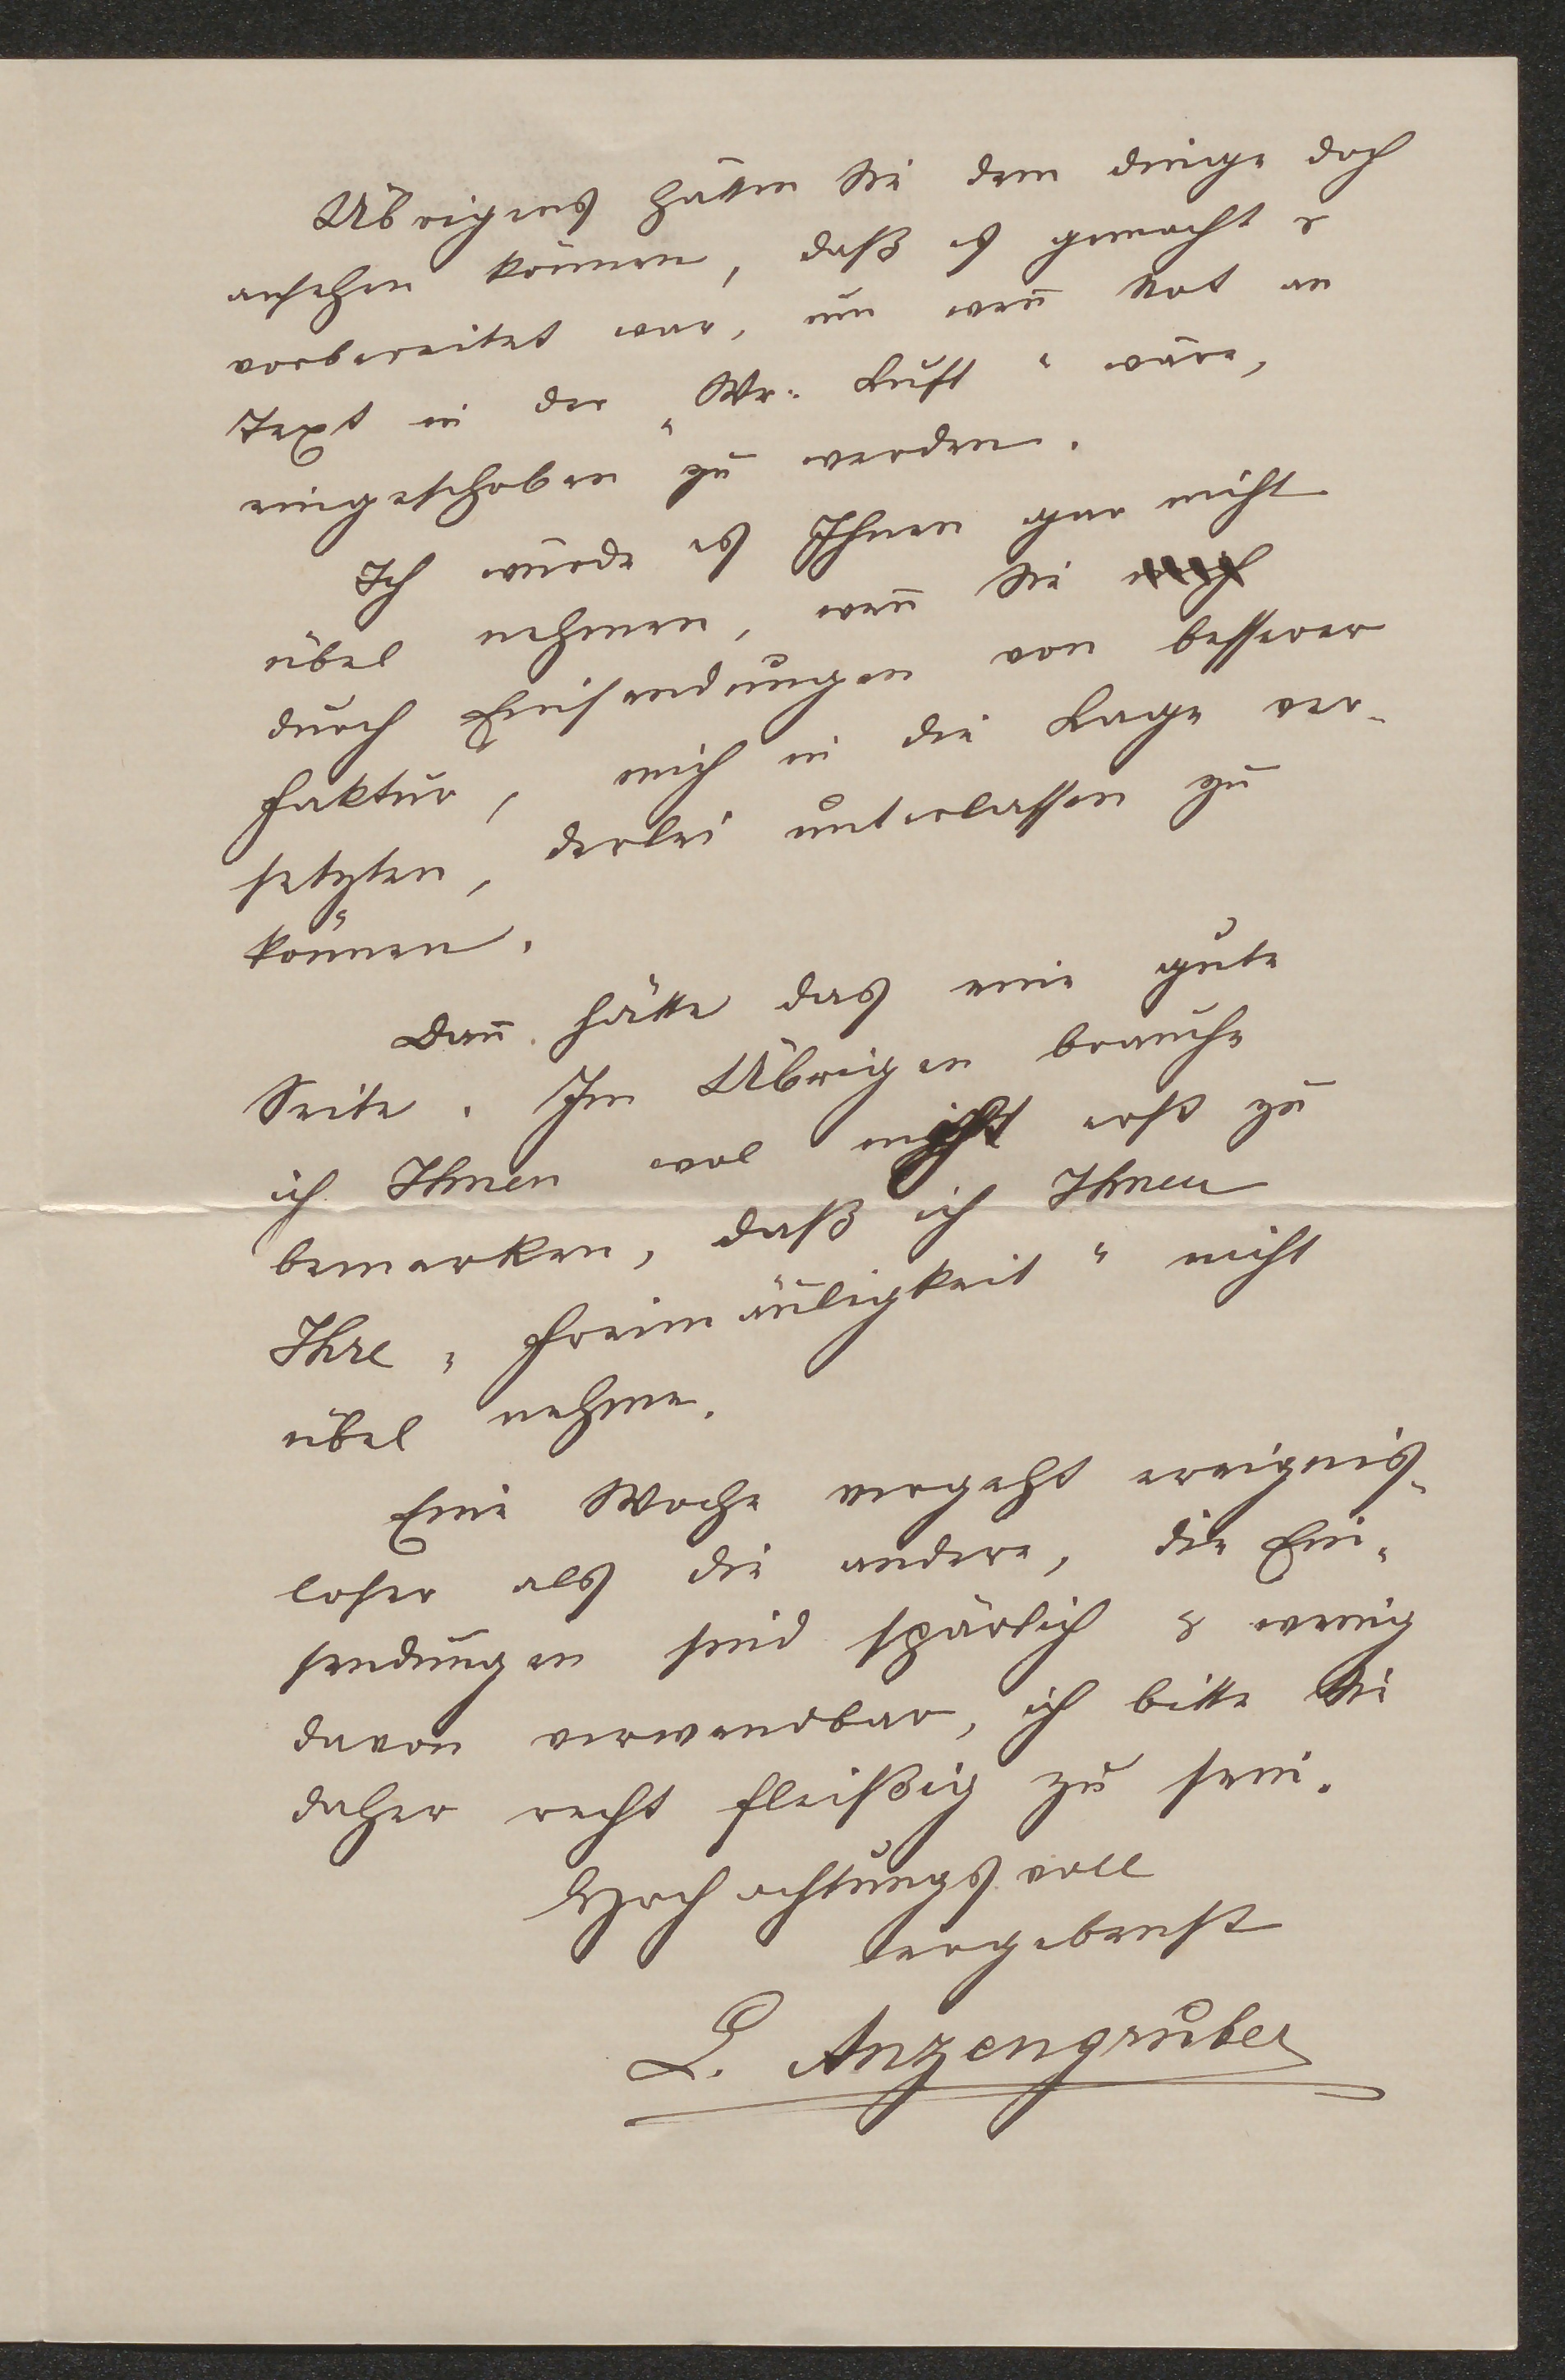 Übrigens hätten Sie dem Dinge doch
ansehen können, daß es gemacht &
vorbereitet war, um wen̄ Not an
Text in der „Wr. Luft“ wäre,
eingeschoben zu werden.
Ich würde es Ihnen gar nicht
übel nehmen, wen̄ Sie
durch Einsendungen von besserer
Faktur, mich in die Lage ver-
setzten, derlei unterlassen zu
können.
Dan̄ hätte das eine gute
Seite. Im Übrigen brauche
ich Ihnen wol nicht erst zu
bemerken, daß ich Ihnen
Ihre „Freimäuligkeit“ nicht
übel nehme.
Eine Woche vergeht ereignis-
loser als die andere, die Ein-
sendungen sind spärlich & wenig
davon verwendbar, ich bitte Sie
daher recht fleißig zu sein.
Hochachtungsvoll
ergebenst
L. Anzengruber